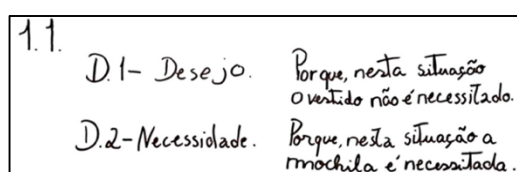 1.1.
D.1- Desejo. Porque, nesta situação
o vestido não é necessitado.
D.2- Necessidade. Porque, nesta situação a
mochila é necessitada.